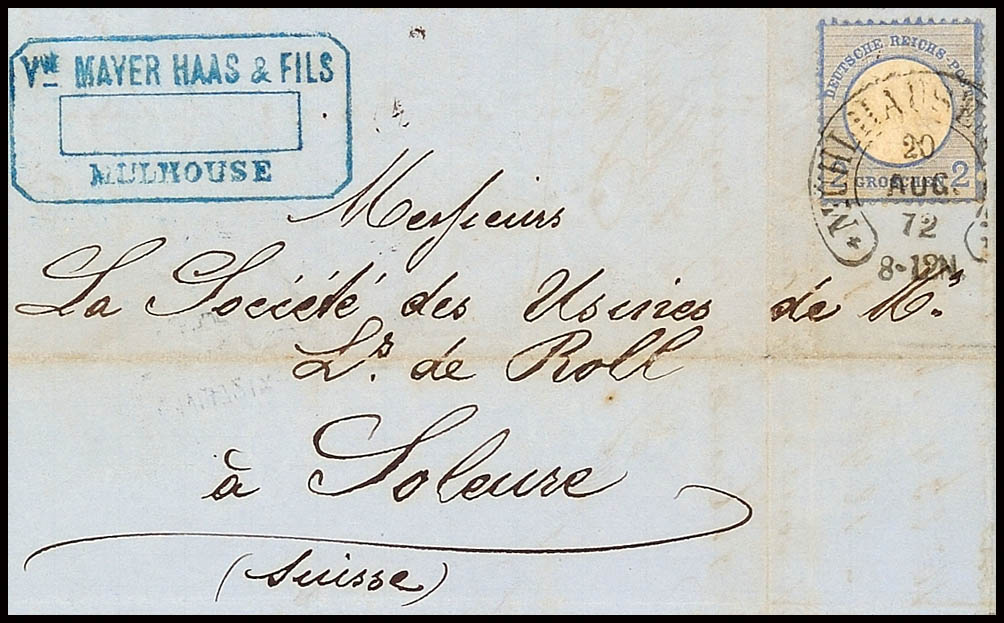 Vve MAYER HAAS & FILS
MULHOUSE
DEUTSCHE REICHS-POST
2 GROSCHEN 2
MÜLHAUSEN
20
AUG.
72
8-12N
Messieurs
La Société des Usines de Mrs
Ls. de Roll
à Soleure
(Suisse)